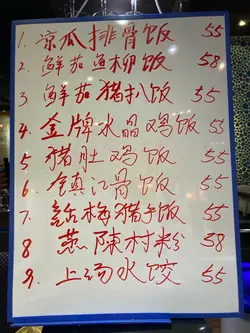 1. 凉瓜排骨饭 55
2. 鮮茄魚柳饭 58
3 鮮茄猪扒饭 55
4. 金牌水晶鸡饭 55
5 猪肚鸡饭 55
6. 鎮江骨饭 55
7. 話梅猪手饭 55
8 蒸陳村粉 58
9. 上汤水饺 55